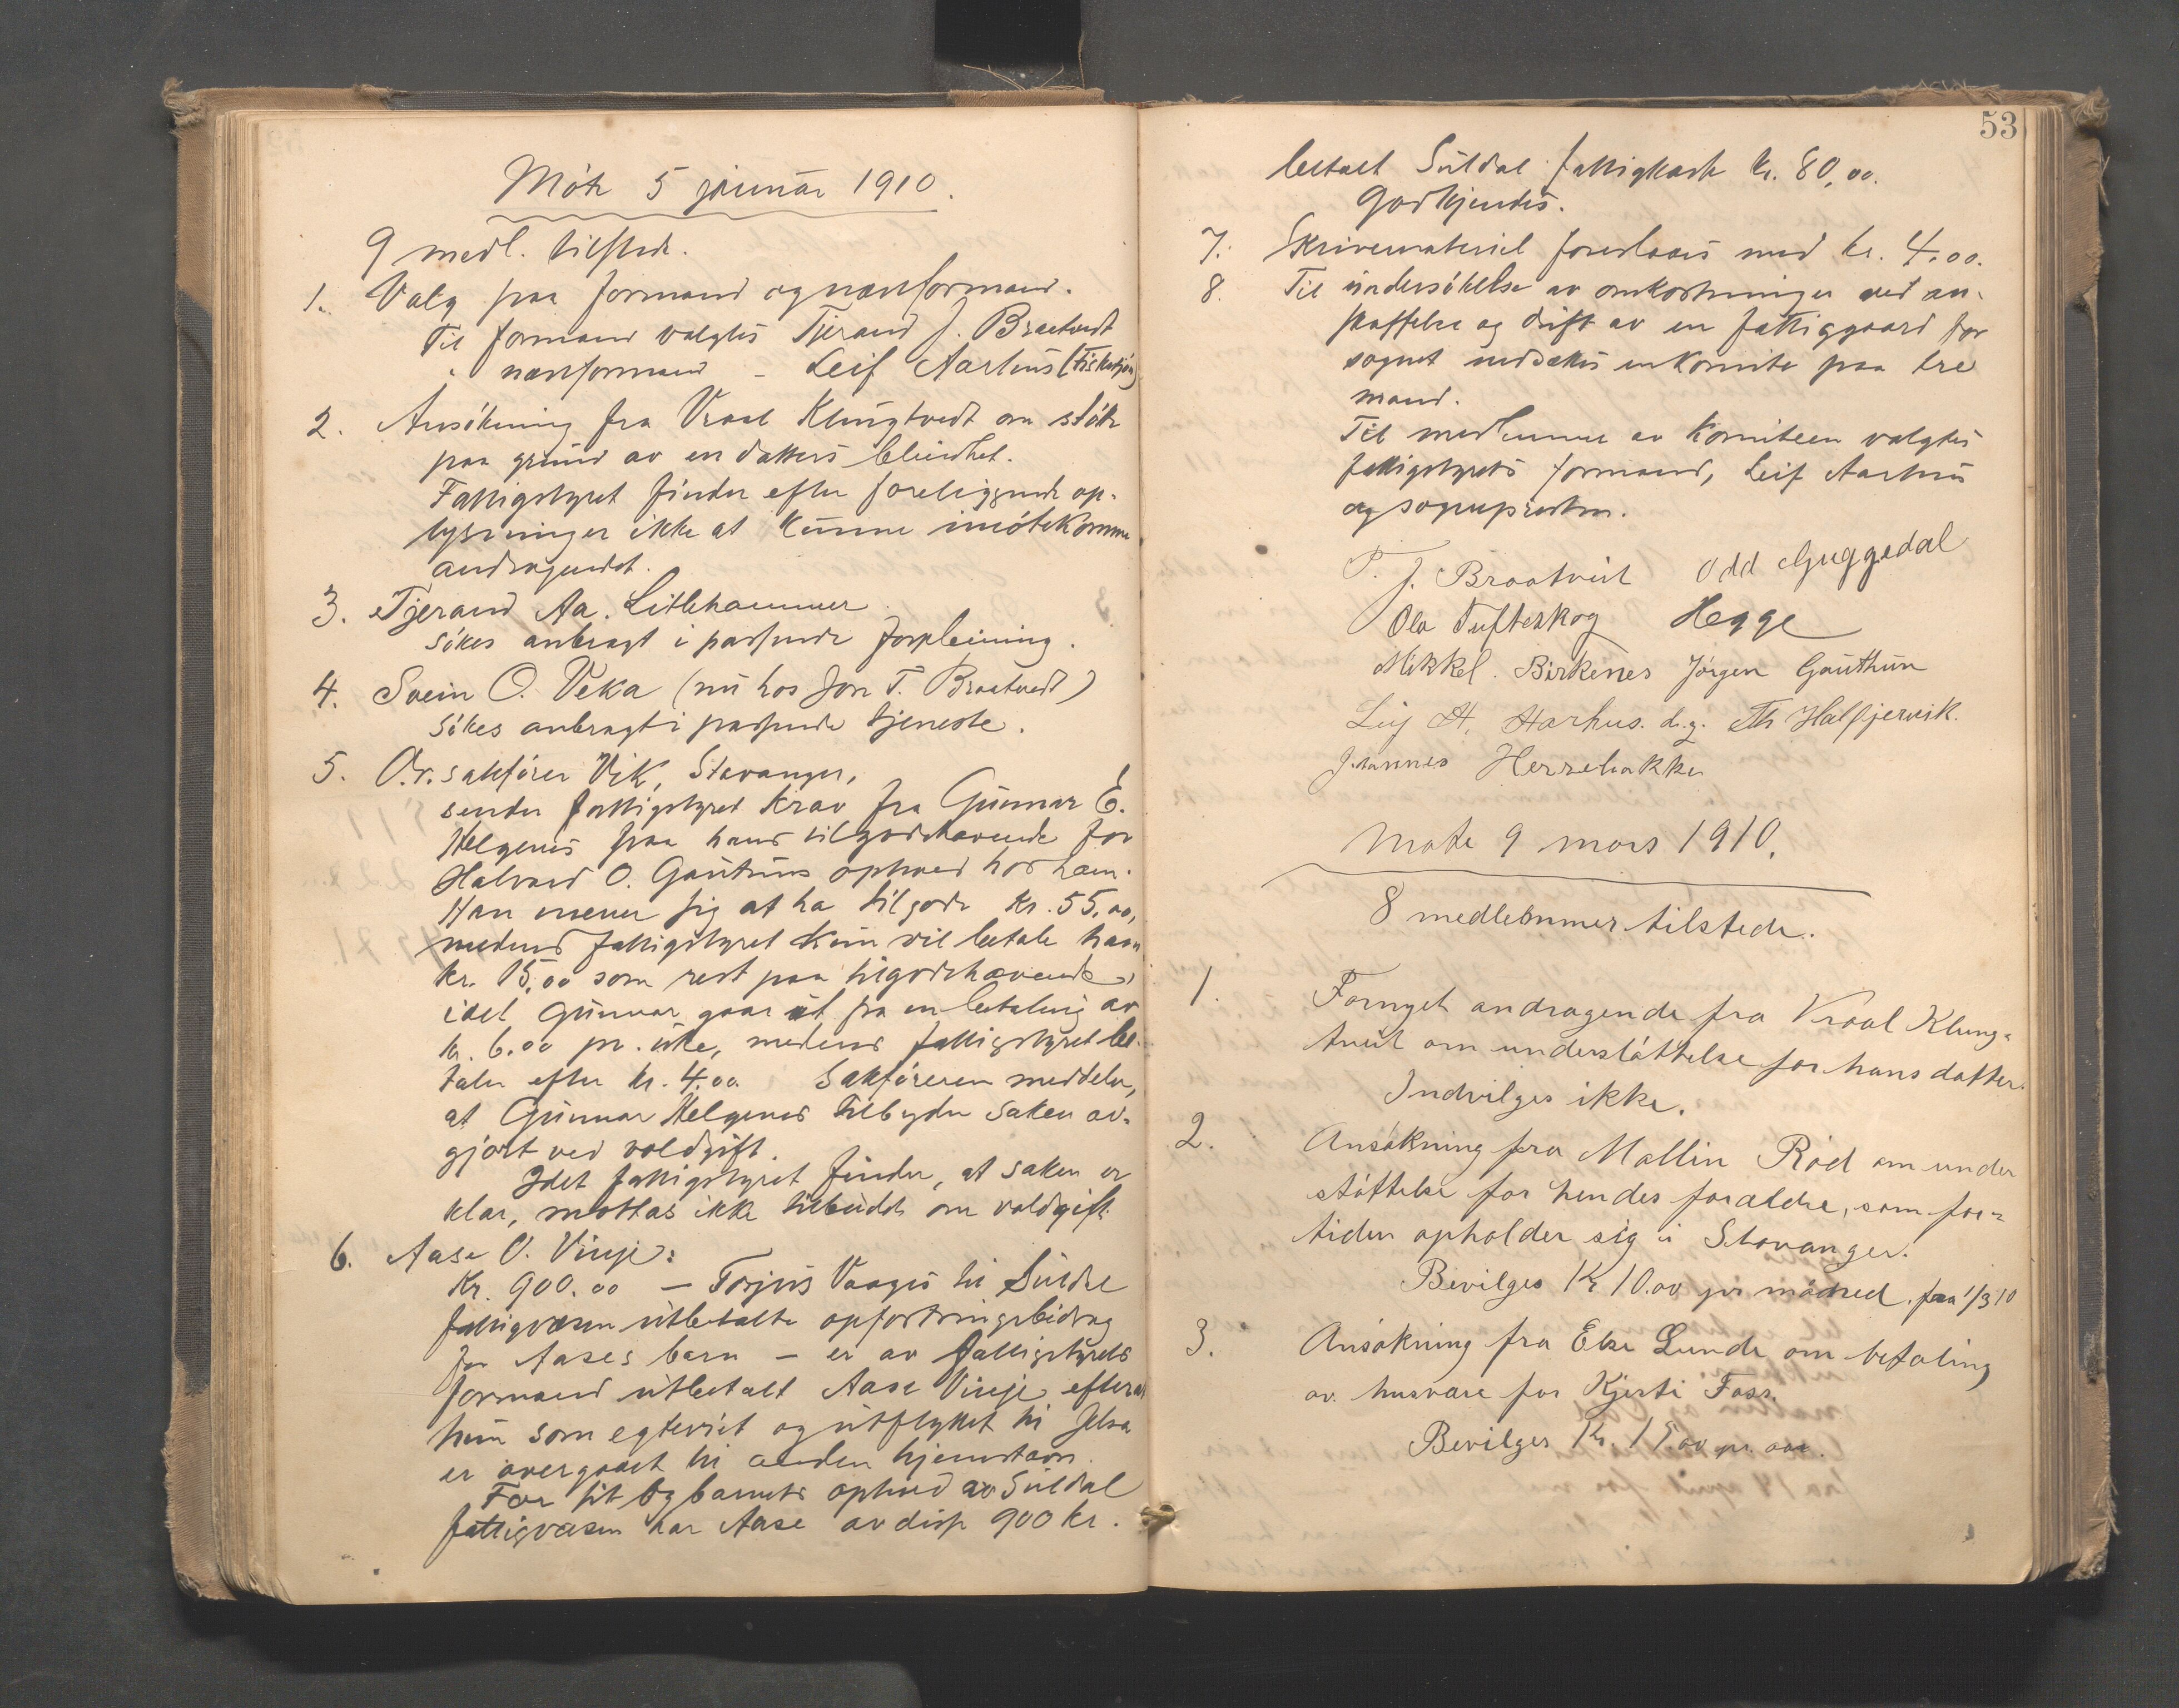 Möte 5 januar 1910.
9 medl. tilstede.
1. Valg paa formand og næstformand.
Til formand valgtes Tjerand J. Braatvedt
" næstformand - Leif Aarhus (Fisketjön)
2. Ansökning fra Vraal Klungtvedt om stötte
paa grund av en datters blindhet.
Fattigstyret finder efter foreliggende op-
lysninger ikke at kunne imötekomme
andragendet.
3. Tjerand Aa. Litlehammer
sökes anbragt i passende forpleining.
4. Svein O. Veka (nu hos Jon T. Braatvedt)
sökes anbragt i passende tjeneste.
5. O.r.sakförer Vik, Stavanger,
sender fattigstyret krav fra Gunnar E.
Helgenes paa hans tilgodehavende for
Halvard O. Gautuns ophold hos ham.
Han mener sig at ha tilgode kr. 55,00,
medens fattigstyret kun vil betale ham
kr. 15,00 som rest paa tilgodehavende,
idet Gunnar gaar ut fra en betaling av
kr. 6.00 pr. uke, medens fattigstyret be-
taler efter kr. 4.00 Sakföreren meddeler,
at Gunnar Helgenes tilbyder saken av-
gjort ved voldgift.
Idet fattigstyret finder, at saken er
klar, mottas ikke tilbudet om voldgift.
6. Aase O. Vinje:
Kr. 900.00 — Torjus Vaages til Suldal
fattigvæsen utbetalte opfostringsbidrag
for Aases barn — er av fattigstyrets
formand utbetalt Aase Vinje efterat
hun som egteviet og utflyttet til Jelsa
er overgaaet til anden hjemstavn.
For sit og barnets ophold av Suldal
fattigvæsen har Aase av disse 900 kr.
53
betalt Suldal fattigkasse kr. 80,00.
Godkjendes.
7. Skrivemateriel foreslaaes med kr. 4.00.
8. Til undersökelse av omkostninger ved an-
skaffelse og drift av en fattiggaard for
sognet nedsættes en komite paa tre
mand.
Til medlemmer av komiteen valgtes
fattigstyrets formand, Leif Aarhus
og sognepresten.
T. J. Braatveit Odd Guggedal
Ola Tufteskog Hegge
Mikkel. Birkenes Jörgen Gautun
Leif A. Aarhus. d.y. Th Halfjervik.
Johannes Herrebakke
Møte 9 mars 1910.
8 medlemmer tilstede.
1. Fornyet andragende fra Vraal Klung-
tveit om understöttelse for hans datter.
Indvilges ikke.
2. Ansøkning fra Mallin Röd om under
støttelse for hendes forældre, som for-
tiden opholder sig i Stavanger.
Bevilges Kr 10.00 pr måned. fra 1/3 10
3. Ansøkning fra Else Lunde om betaling
av husvære for Kjersti Foss.
Bevilges Kr. 15.00 pr. aar.